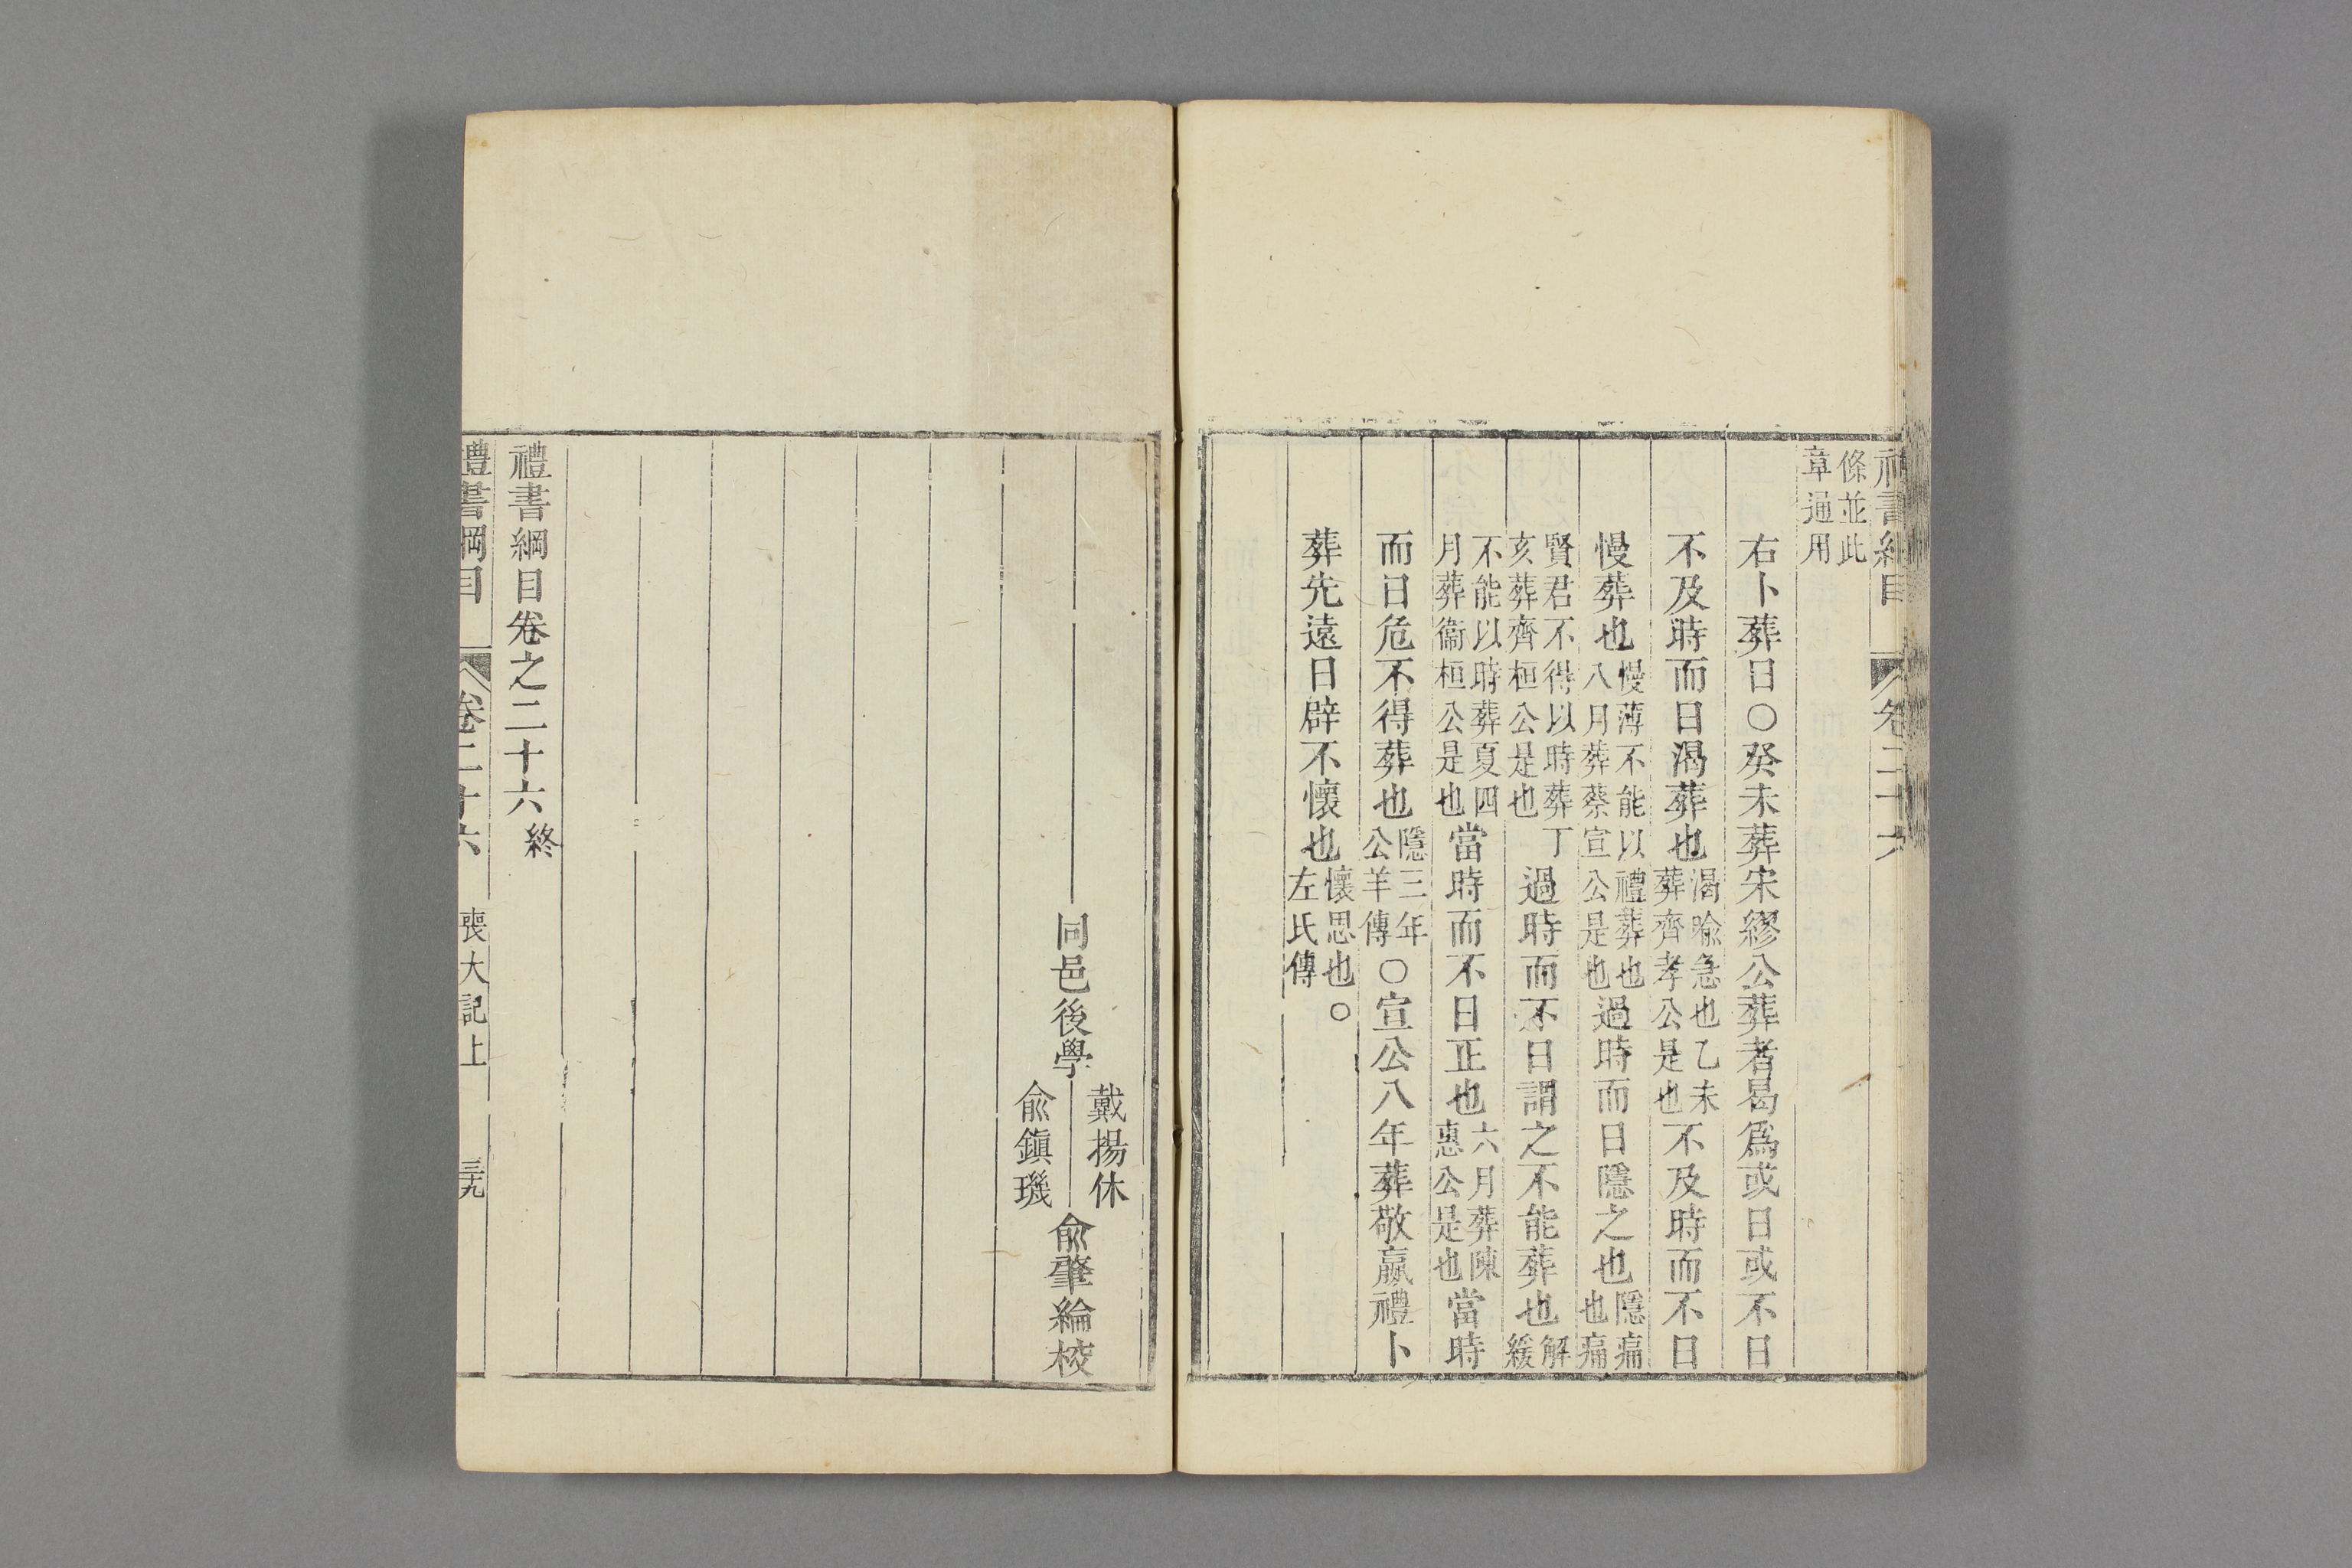 條並此
章通用
右卜葬日○癸未葬宋繆公葬者曷爲或日或不日
不及時而日渴葬也渴喩急也乙未葬齊孝公是也不及時而不日
慢葬也慢薄不能以禮葬也八月葬蔡宣公是也過時而日隱之也隱痛也痛
賢君不得以時葬丁亥葬齊桓公是也過時而不日謂之不能葬也解緩
不能以時葬夏四月葬衞桓公是也當時而不日正也六月葬陳惠公是也當時
而日危不得葬也隱三年公羊傳○宣公八年葬敬嬴禮卜
葬先遠日辟不懷也懷思也○左氏傳
同邑後學
戴揚休
俞鎮璣
俞肇綸校
禮書綱目卷之二十六終
禮書綱目 卷二十六 喪大記上 三十九